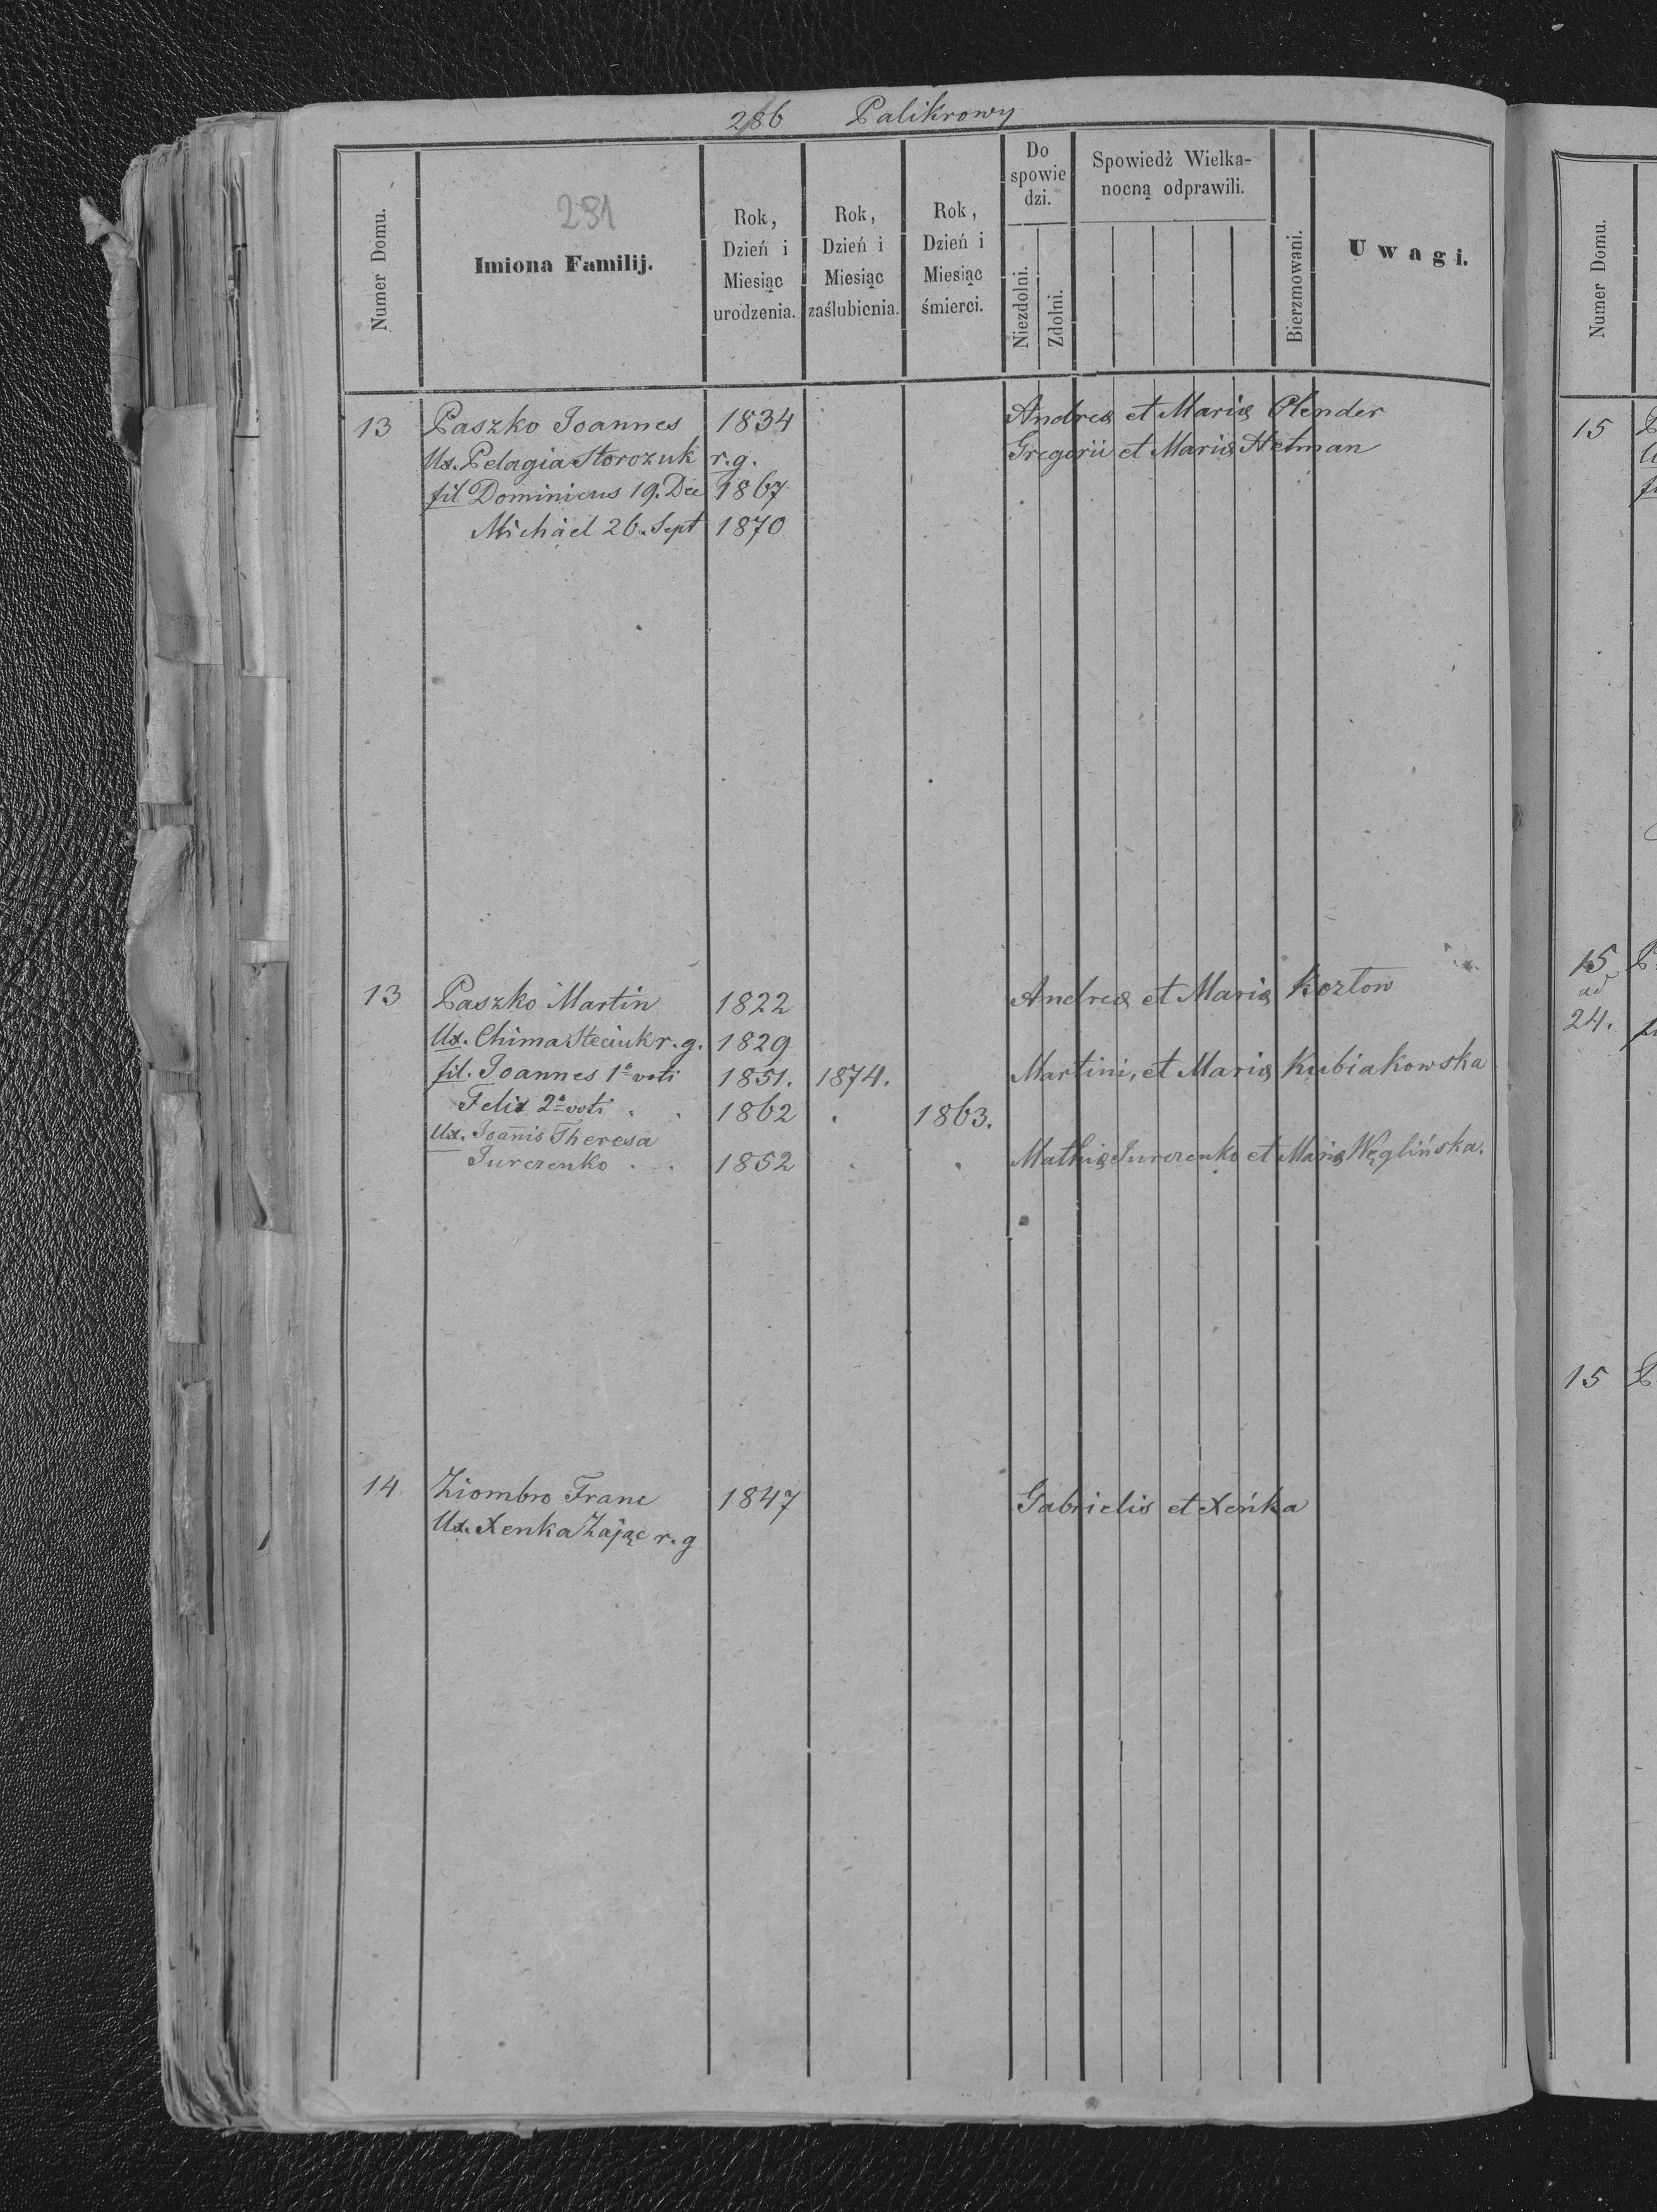 286 Palikrowy
Numer Domu.
291
Imiona Familij.
Rok,
Dzień i
Miesiąc
urodzenia.
Rok,
Dzień i
Miesiąc
zaślubienia.
Rok,
Dzień i
Miesiąc
śmierci.
Do
spowie
dzi.
Niezdolni.
Zdolni.
Spowiedź Wielka-
nocną odprawili.
Bierzmowani.
Uwagi.
13 Paszko Joannes 1834 Andreæ et Mariæ Olender
Ux. Pelagia Storozuk r.g. Gregorii et Mariæ Hetman
fil Dominicus 19. Dec 1867
Michäel 26. Sept 1870
13 Paszko Martin 1822 Andreæ et Mariæ Kozłow
Ux. Chima Steciuk r.g. 1829
fil. Joannes 1º voti 1851. 1874. Martini, et Mariæ Kubiakowska
Felix 2º voti . . 1862 . 1863.
Ux. Joãnis Theresa
Jurczenko . . 1852 . . Mathiæ Jurczenko et Mariæ Węglińska.
14 Ziombro Franc 1847 Gabrielis et Xeńka
Ux. Xenka Zając r.g
Numer Domu.
15
15
ad
24.
15